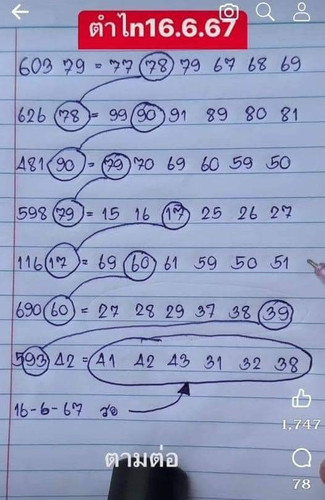 ตำไn16.6.67
603 79 = 77 78 79 67 68 69
626 78 = 99 90 91 89 80 81
481 90 = 79 70 69 60 59 50
598 79 = 15 16 17 25 26 27
116 17 = 69 60 61 59 50 51
690 60 = 27 28 29 37 38 39
593 42 = 41 42 43 31 32 38
16-6-67
1,747
ตามต่อ
78